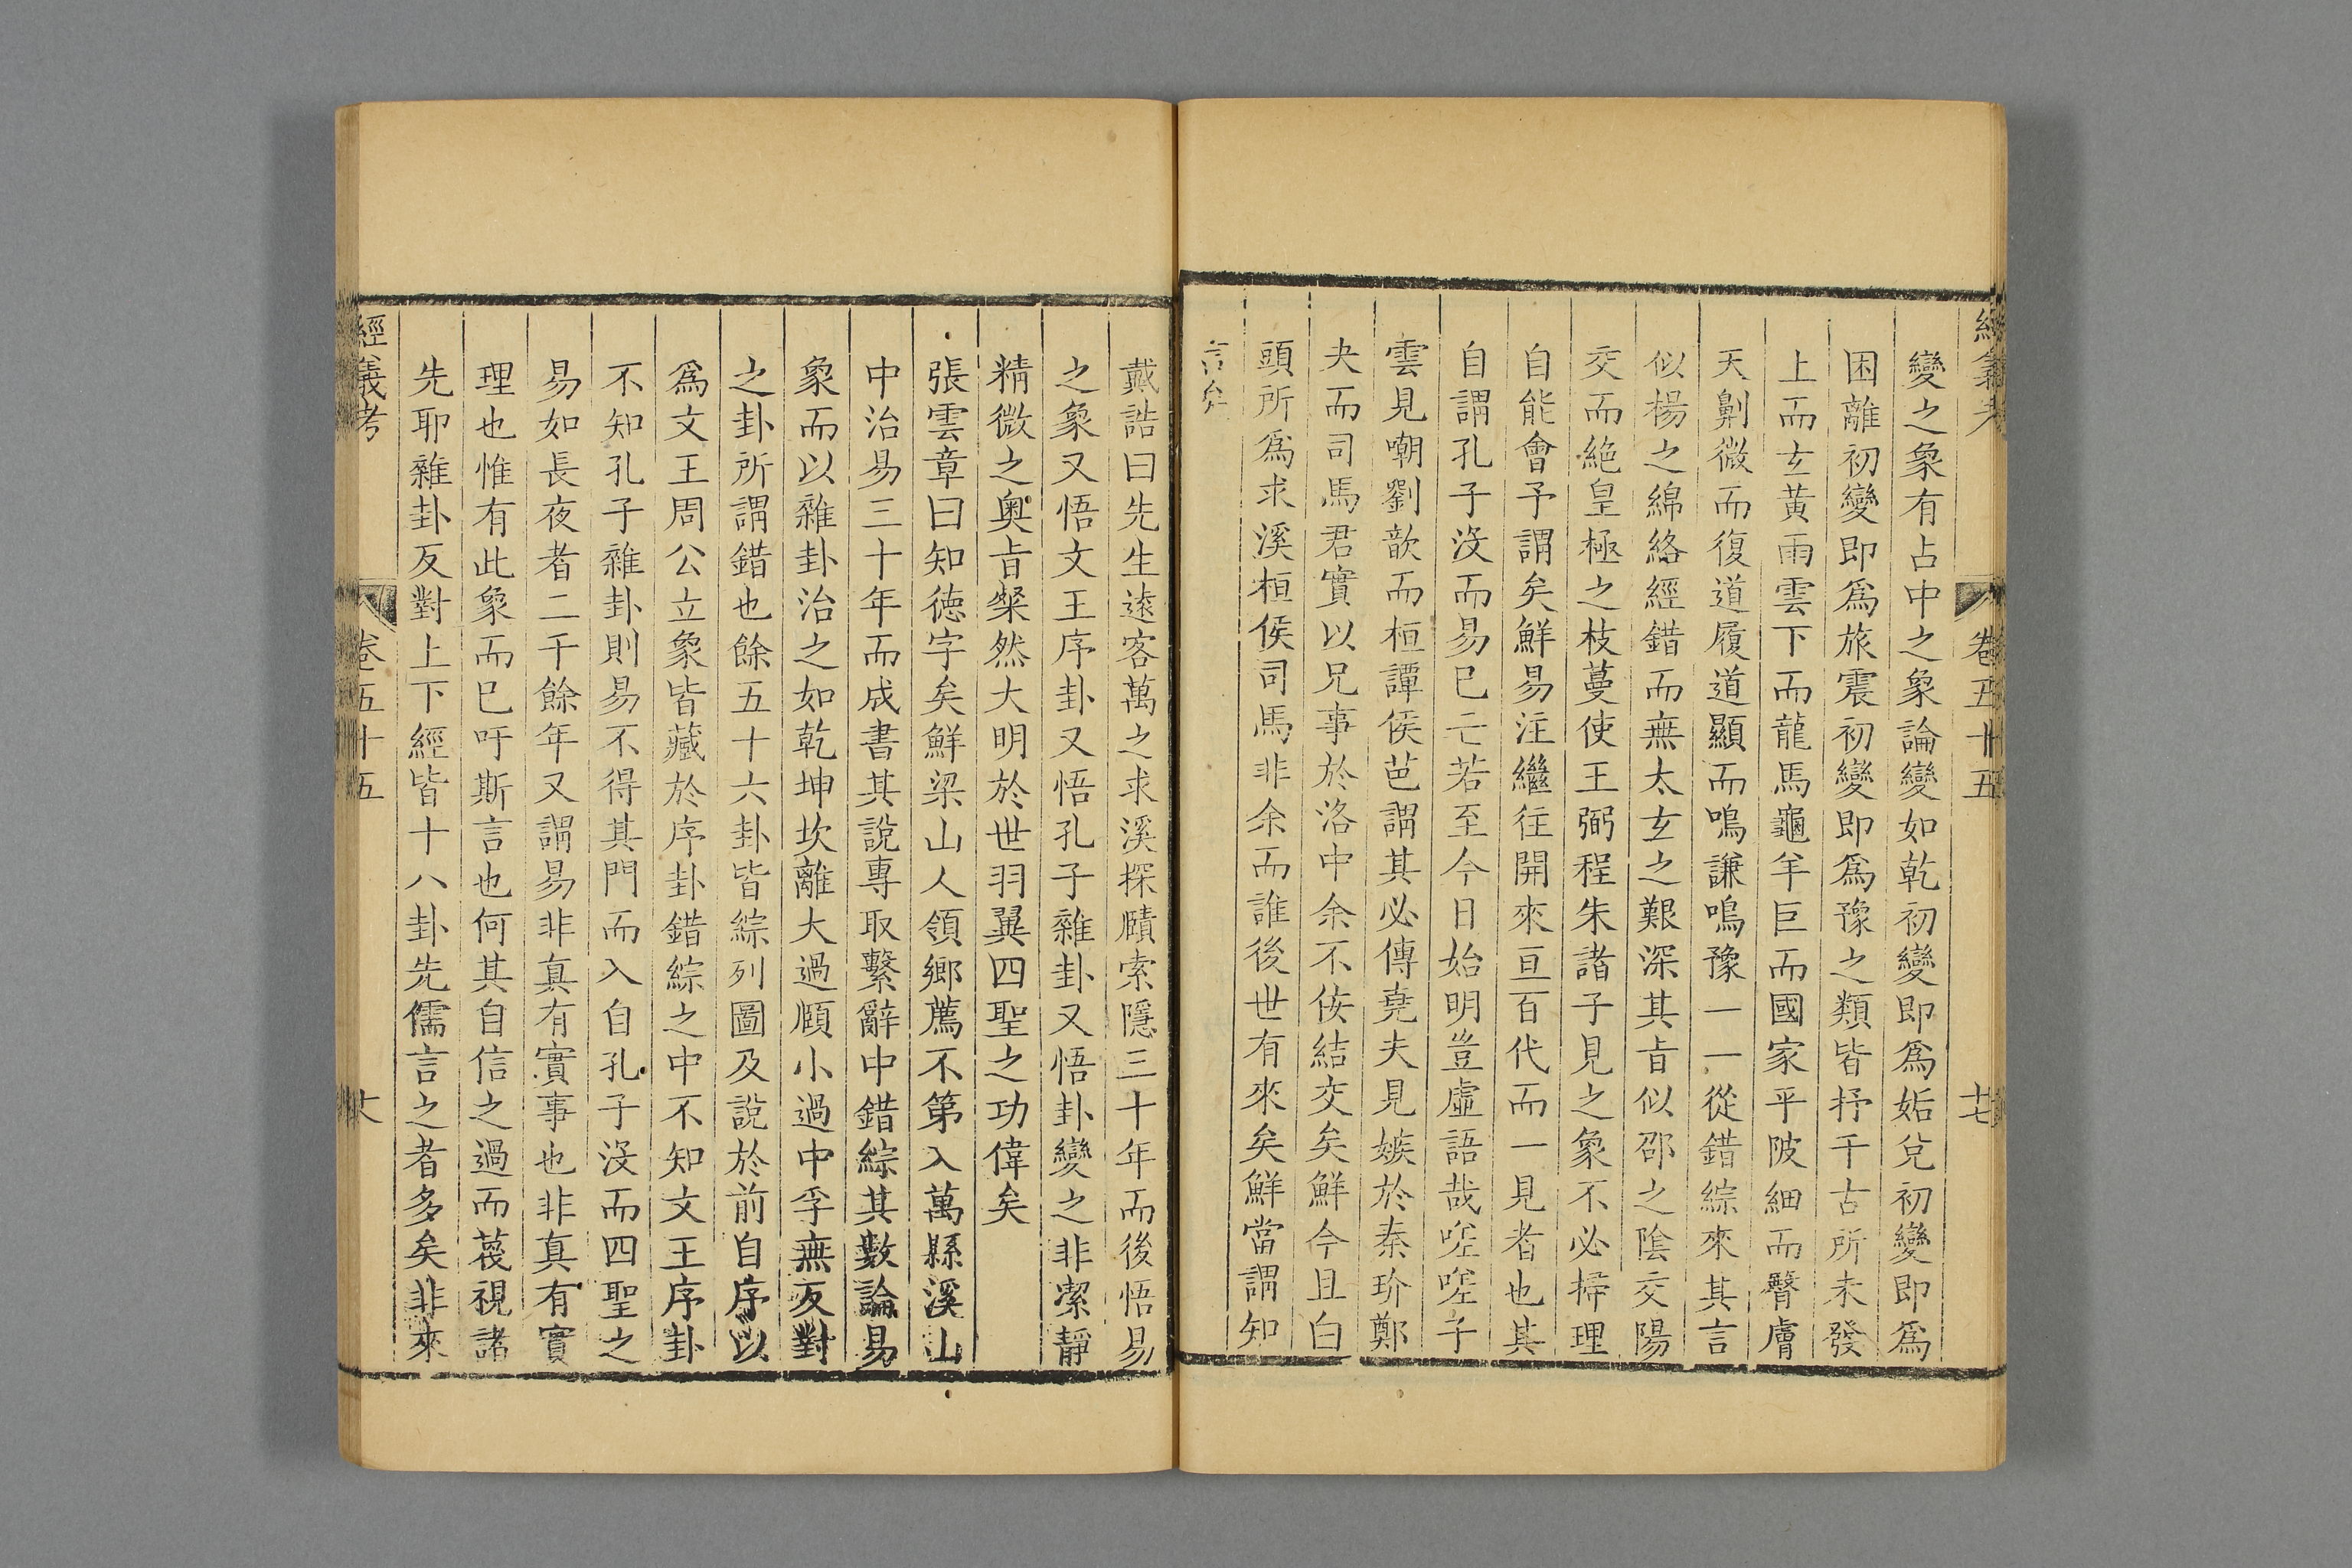 經義考 卷五十五 十七
變之象有占中之象論變如乾初變即爲姤兌初變即爲
困離初變即爲旅震初變即爲豫之類皆抒千古所未發
上而玄黃雨雲下而龍馬龜羊巨而國家平陂細而臀膚
天劓微而復道履道顯而鳴謙鳴豫一一從錯綜來其言
似楊之綿絡經錯而無太玄之艱深其㫖似邵之陰交陽
交而絶皇極之枝蔓使王弼程朱諸子見之象不必掃理
自能會予謂矣鮮易注繼往開來亘百代而一見者也其
自謂孔子沒而易已亡若至今日始明豈虛語哉嗟嗟子
雲見嘲劉歆而桓譚侯芭謂其必傳堯夫見嫉於秦玠鄭
夬而司馬君實以兄事於洛中余不佞結交矣鮮今且白
頭所爲求溪桓侯司馬非余而誰後世有來矣鮮當謂知
言矣
戴誥曰先生遠客萬之求溪探賾索隱三十年而後悟易
之象又悟文王序卦又悟孔子雜卦又悟卦變之非潔靜
精微之奧㫖粲然大明於世羽翼四聖之功偉矣
張雲章曰知德字矣鮮梁山人領鄉薦不第入萬縣溪山
中治易三十年而成書其說專取繫辭中錯綜其數論易
象而以雜卦治之如乾坤坎離大過頤小過中孚無反對
之卦所謂錯也餘五十六卦皆綜列圖及說於前自序以
爲文王周公立象皆藏於序卦錯綜之中不知文王序卦
不知孔子雜卦則易不得其門而入自孔子沒而四聖之
易如長夜者二千餘年又謂易非真有實事也非真有實
理也惟有此象而已吁斯言也何其自信之過而蔑視諸
先耶雜卦反對上下經皆十八卦先儒言之者多矣非來
經義考 卷五十五